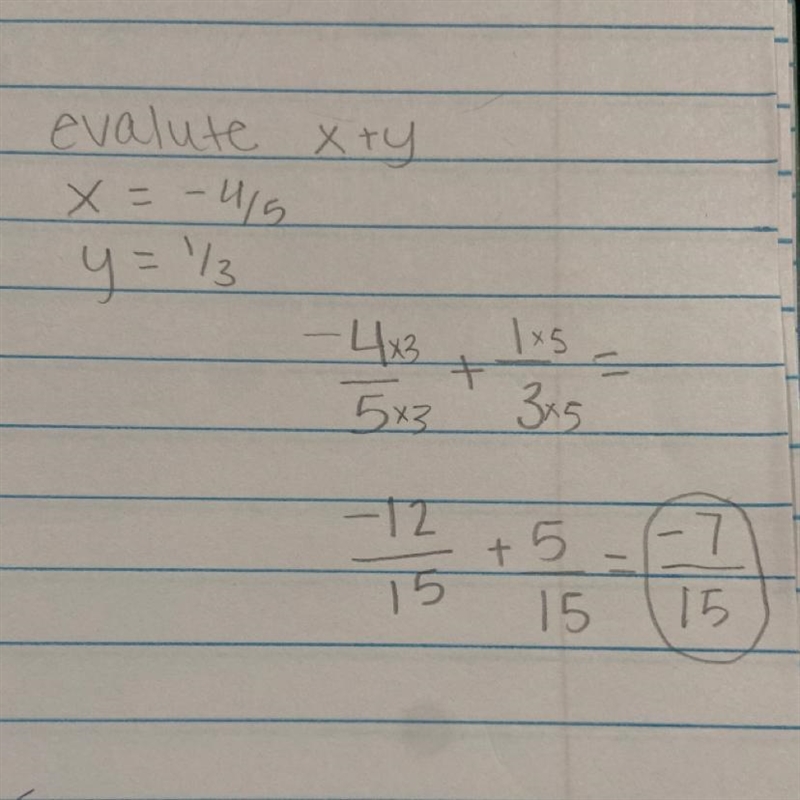 evalute x+y
x = -4/5
y = 1/3
-4×3/5×3 + 1×5/3×5 =
-12/15 + 5/15 = -7/15